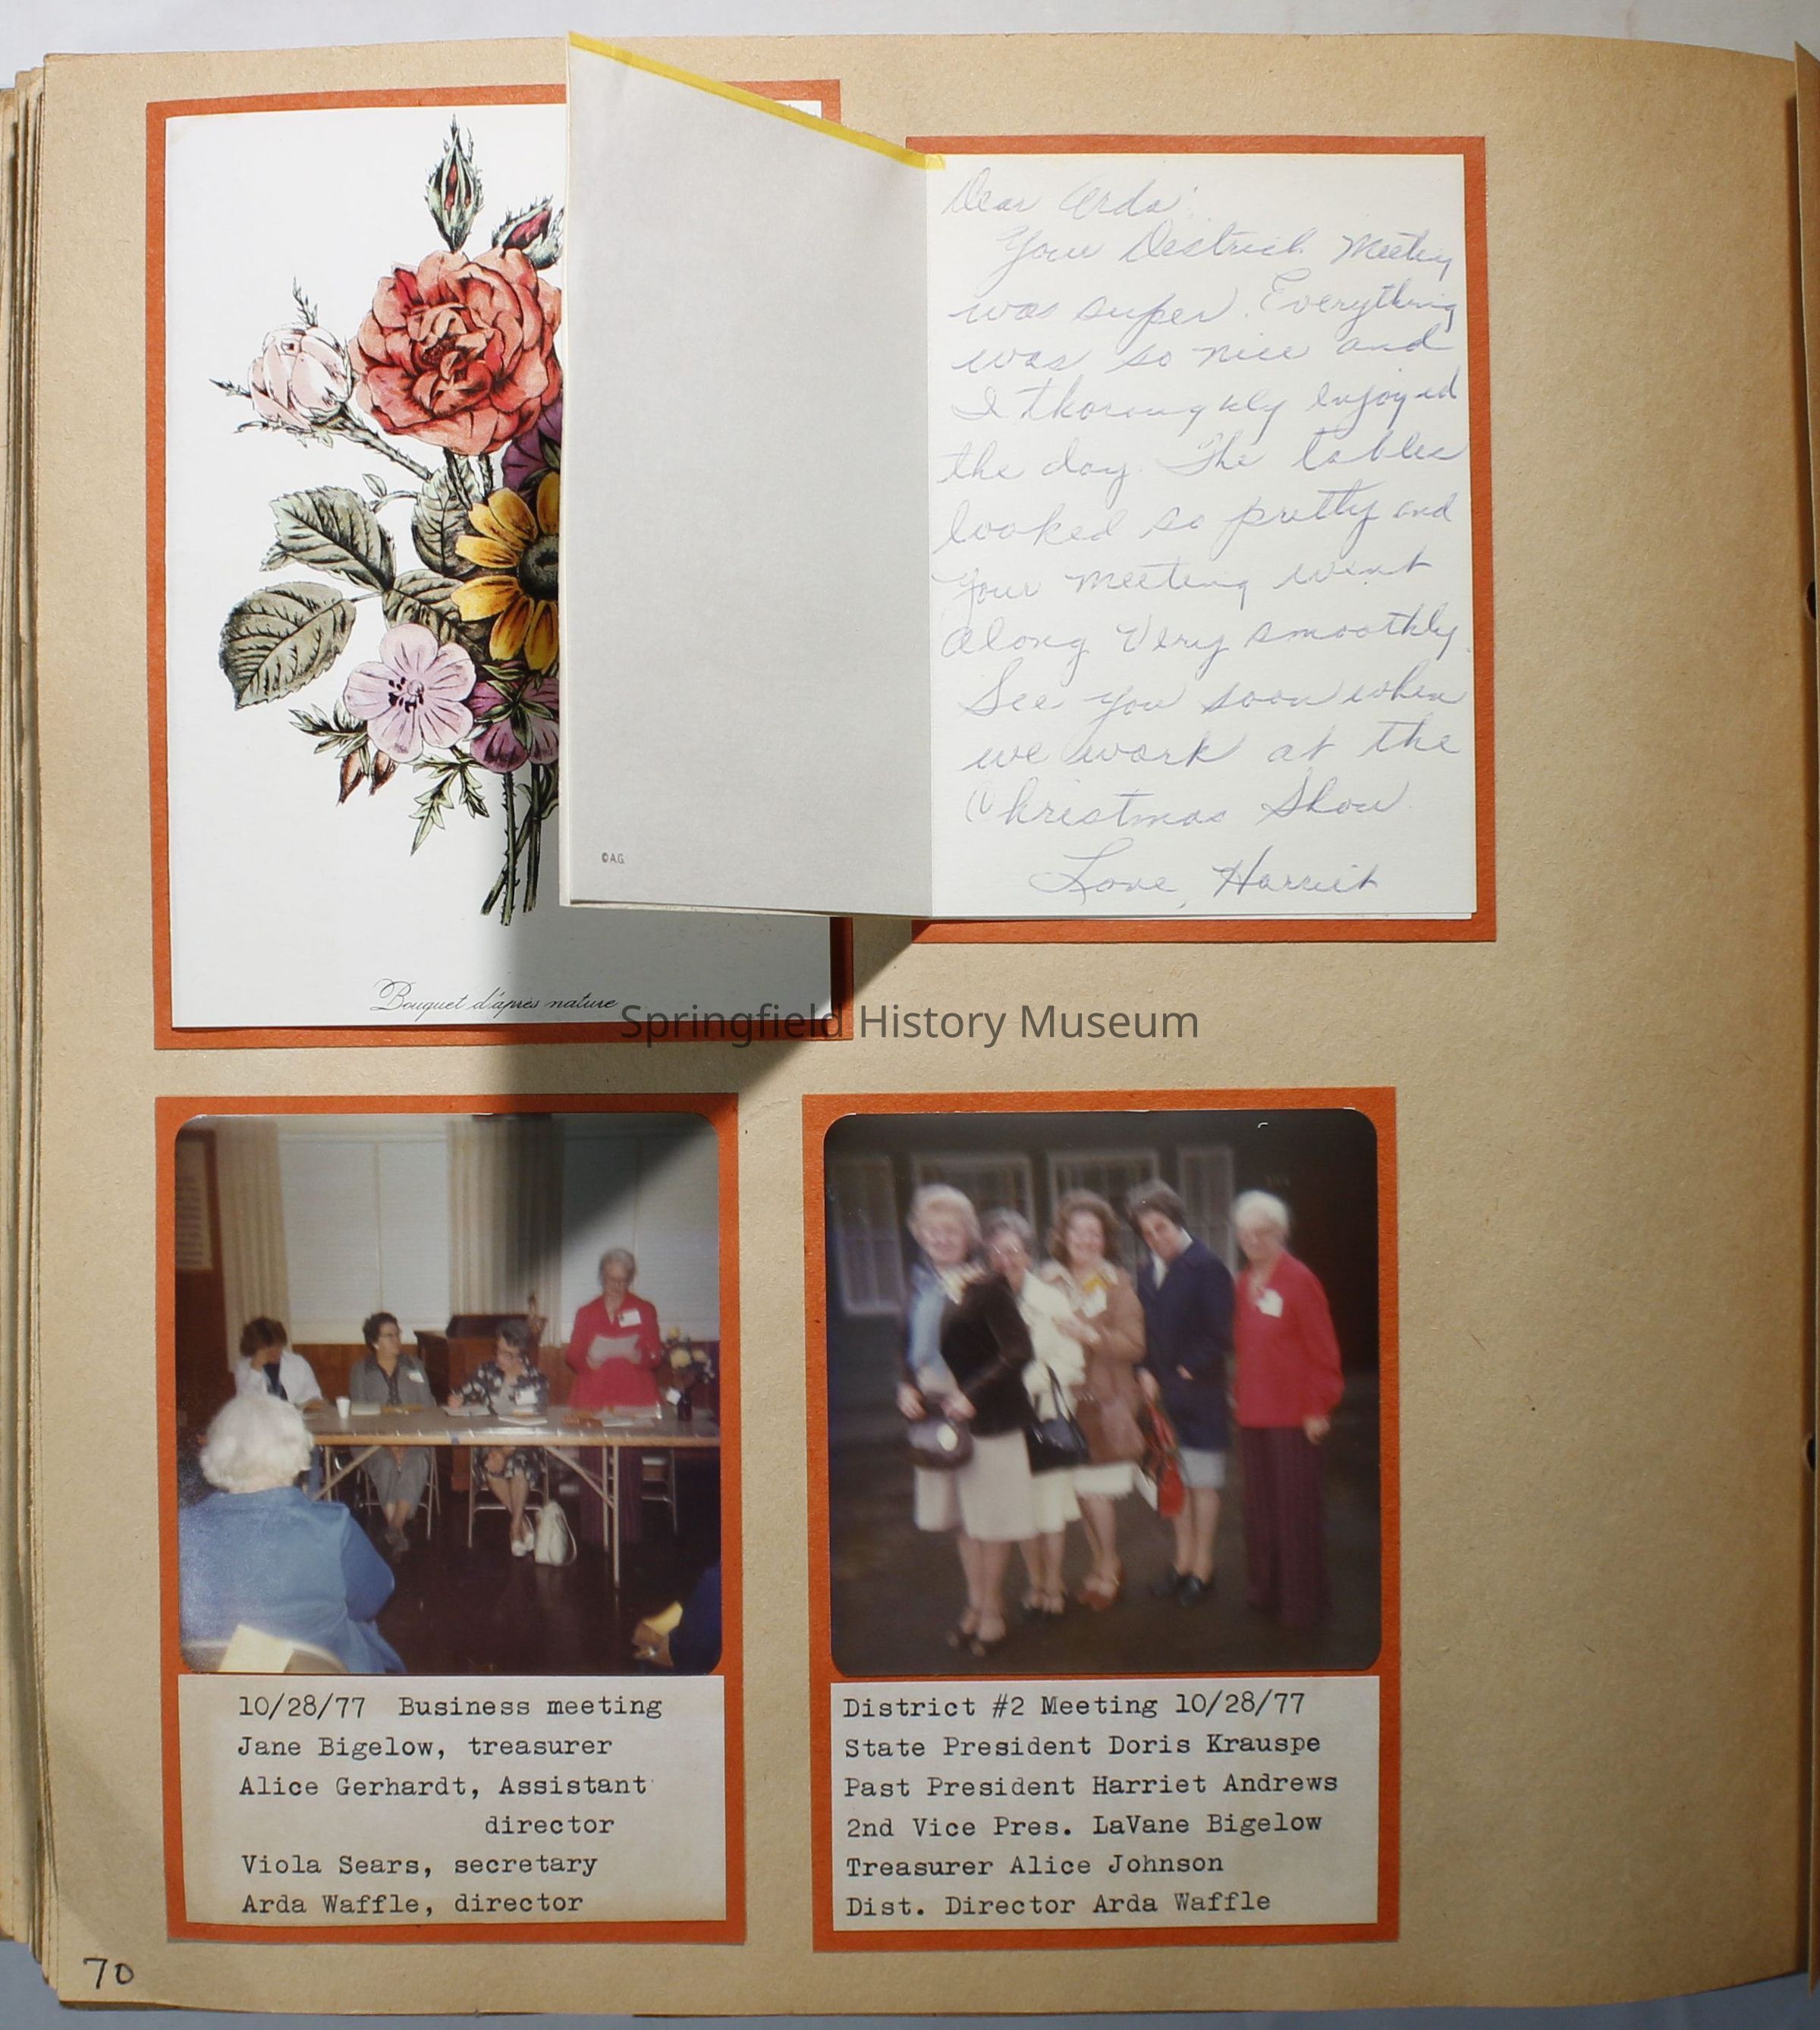 Dear Arda:
Your Destrict Meeting
was super. Everything
was so nice and
I thoroughly enjoyed
the day. The tables
looked so pretty and
Your meeting went
along very smoothly.
See you soon when
we work at the
Christmas Show
Love, Harriet
©A.G.
Bouquet d'après nature
Springfield History Museum
10/28/77 Business meeting
Jane Bigelow, treasurer
Alice Gerhardt, Assistant
director
Viola Sears, secretary
Arda Waffle, director
District #2 Meeting 10/28/77
State President Doris Krauspe
Past President Harriet Andrews
2nd Vice Pres. LaVane Bigelow
Treasurer Alice Johnson
Dist. Director Arda Waffle
70